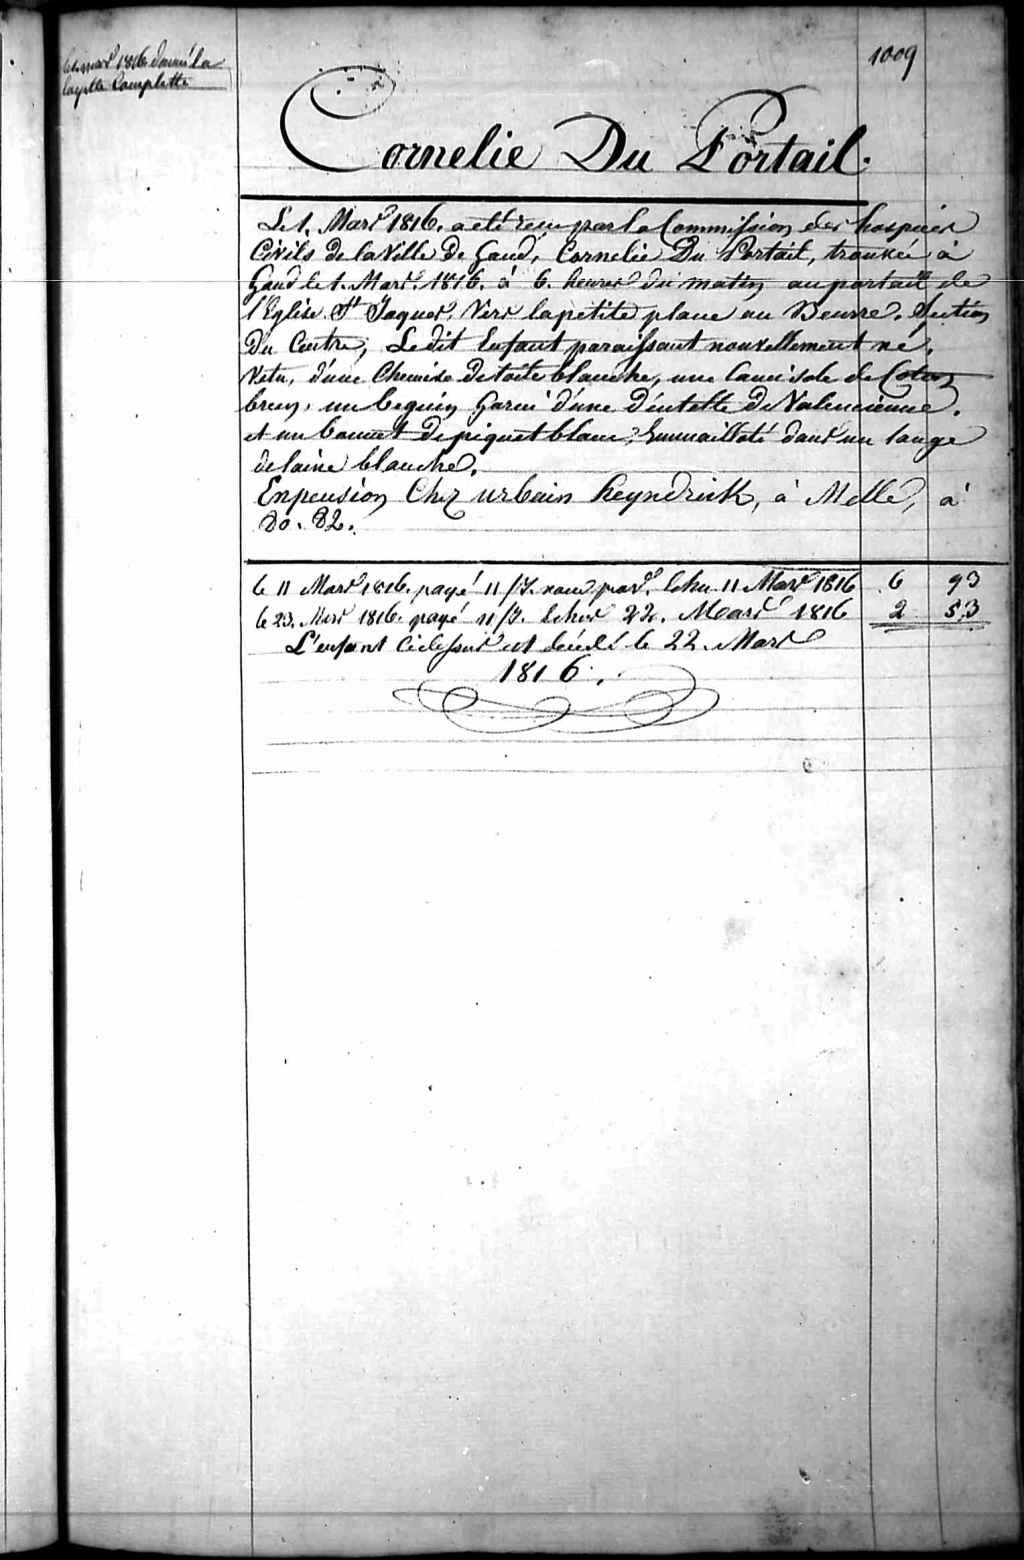 1009
Le 1 mars 1816 donné la
layette Complette
Cornelie Du Portail.
Le 1. Mars 1816. a été recu par la Commission des hospices
Civils de la Ville de Gand, Cornelie Du Portail, trouvée à
Gand le 1. Mars 1816. à 6. heures du matin au portail de
l'Eglise St Jaques, Vers la petite place au Beurre. Section
du Centre, Le dit Enfant paraissant nouvellement né,
Vetu, d'une Chemise de toile blanche, une Camisole de Coton
brun, un beguin Garni d'une Dentelle de Valencienne,
et un bonnet de piquet blanc, Emmailloté dans un lange
de laine blanche.
En pension Chez urbain heyndrick, à Melle, à
80. 82.
le 11 Mars 1816. payé 11/7. echu 11 Mars 1816 6 93
le 23. Mars 1816. payé 11/7. echu 22. Mars 1816 2 53
L'enfant Cidessus est décédé le 22. Mars
1816.